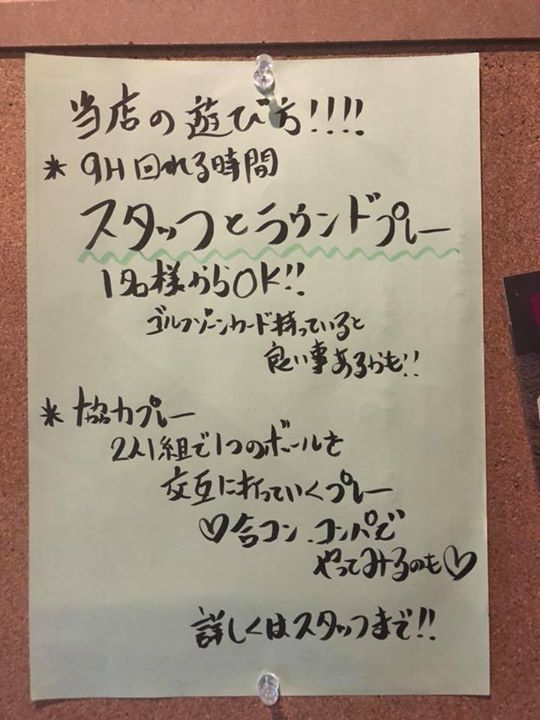 当店の遊び方!!!!
* 9H回れる時間
スタッフとラウンドプレー
1名様からOK!!
ゴルフゾーンカード持っていると
良い事あるかも!!
* 協力プレー
2人1組で1つのボールを
交互に打っていくプレー
♡合コン.コンパで
やってみるのも♡
詳しくはスタッフまで!!